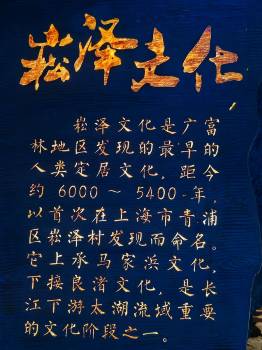 崧泽文化
崧泽文化是广富
林地区发现的最早的
人类定居文化，距今
约 6000～5400 年，
以首次在上海市青浦
区崧泽村发现而命名。
它上承马家浜文化，
下接良渚文化，是长
江下游太湖流域重要
的文化阶段之一。